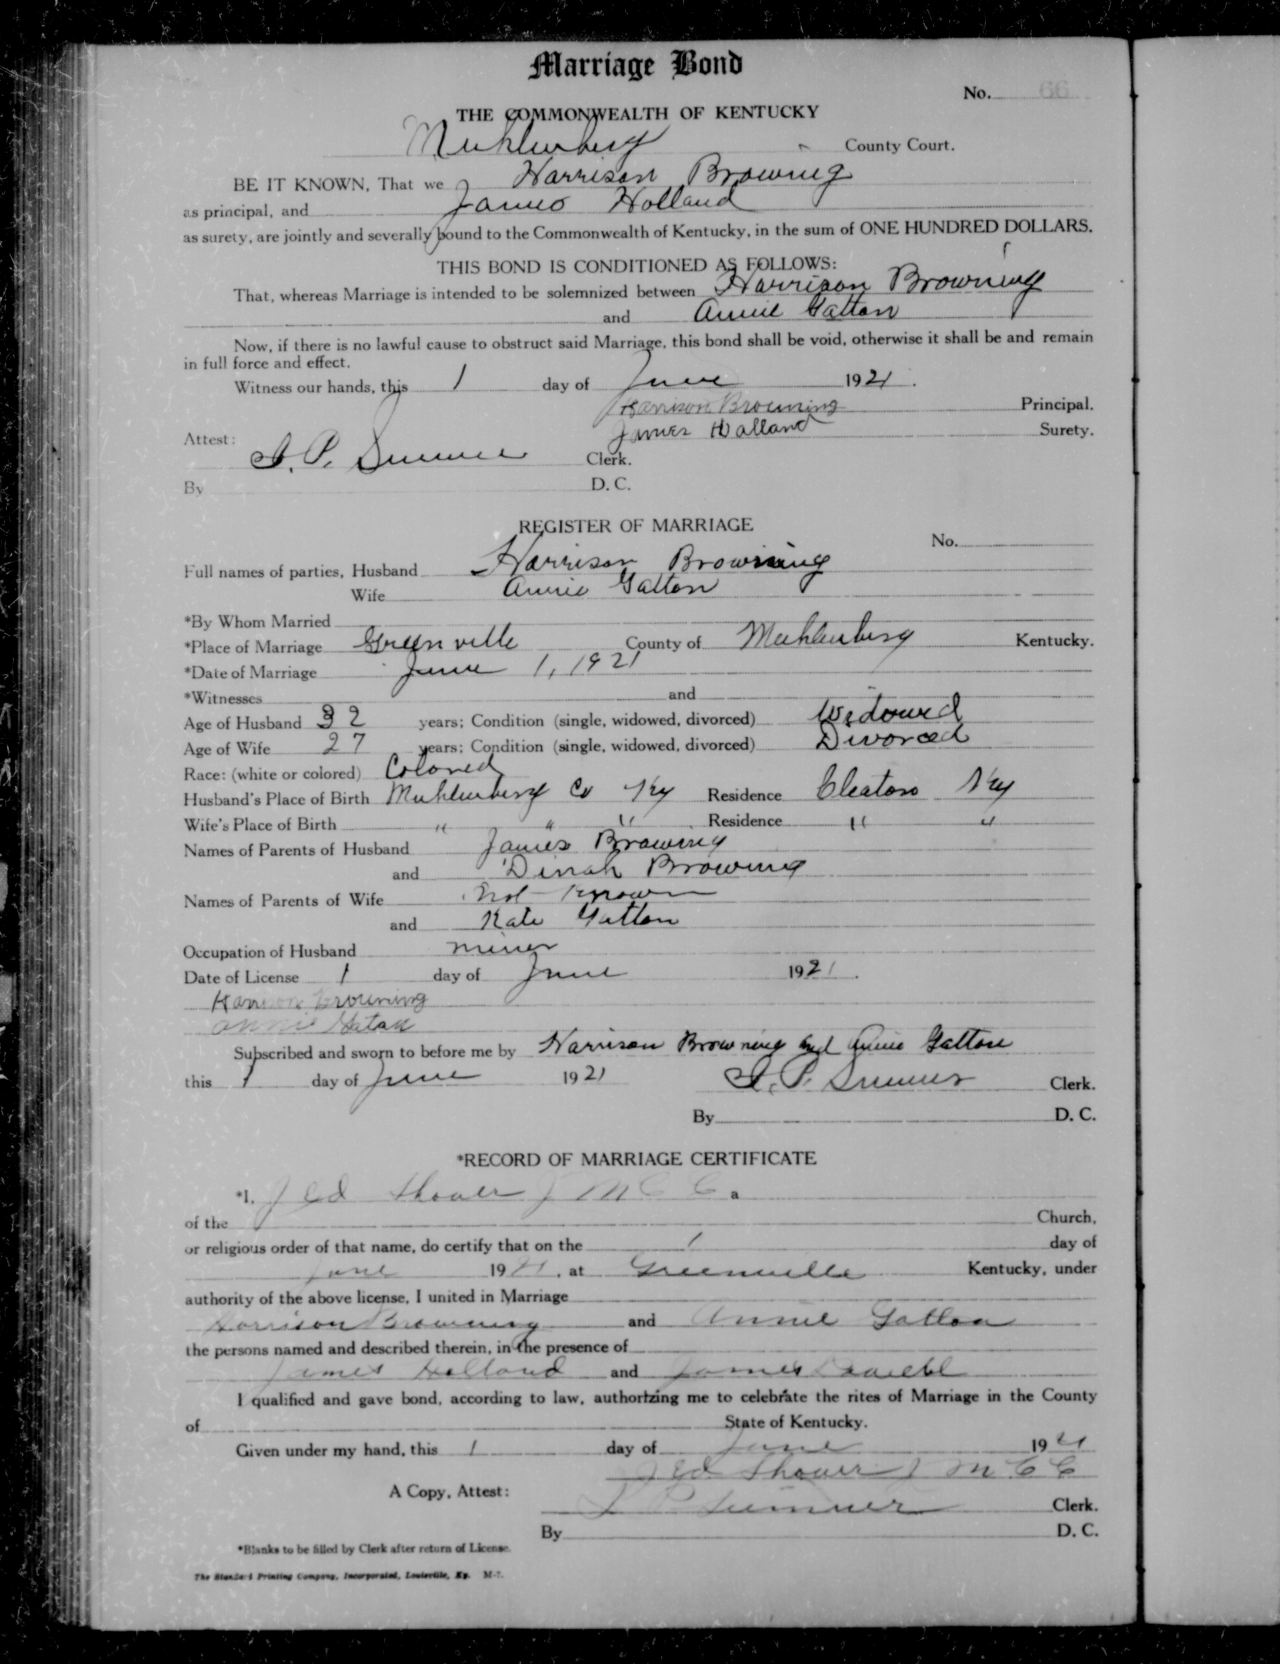 Marriage Bond
No. 66
THE COMMONWEALTH OF KENTUCKY
Muhlenberg County Court.
BE IT KNOWN, That we Harrison Browning
as principal, and James Holland
as surety, are jointly and severally bound to the Commonwealth of Kentucky, in the sum of ONE HUNDRED DOLLARS.
THIS BOND IS CONDITIONED AS FOLLOWS:
That, whereas Marriage is intended to be solemnized between Harrison Browning
and Annie Gatton
Now, if there is no lawful cause to obstruct said Marriage, this bond shall be void, otherwise it shall be and remain
in full force and effect.
Witness our hands, this 1 day of June 1921.
Harrison Browning Principal.
James Holland Surety.
Attest:
Clerk.
By D. C.
REGISTER OF MARRIAGE
No.
Full names of parties, Husband Harrison Browning
Wife Annie Gatton
*By Whom Married
*Place of Marriage Greenville County of Muhlenberg Kentucky.
*Date of Marriage June 1, 1921
*Witnesses and
Age of Husband 32 years; Condition (single, widowed, divorced) Widowed
Age of Wife 27 years; Condition (single, widowed, divorced) Divorced
Race: (white or colored) Colored
Husband's Place of Birth Muhlenberg Co Ky Residence Cleaton Ky
Wife's Place of Birth " " " Residence " "
Names of Parents of Husband James Browning
and Dinah Browning
Names of Parents of Wife Not Known
and Kate Gatton
Occupation of Husband miner
Date of License 1 day of June 1921.
Harrison Browning
Annie Gatan
Subscribed and sworn to before me by Harrison Browning and Annie Gatton
this 1 day of June 1921 Clerk.
By D. C.
*RECORD OF MARRIAGE CERTIFICATE
*I, J M C C a
of the Church,
or religious order of that name, do certify that on the 1 day of
June 1921, at Greenville Kentucky, under
authority of the above license, I united in Marriage
Harrison Browning and Annie Gatton
the persons named and described therein, in the presence of
James Holland and James
I qualified and gave bond, according to law, authorizing me to celebrate the rites of Marriage in the County
of State of Kentucky.
Given under my hand, this 1 day of June 1921
J M C C
A Copy, Attest: Sumner Clerk.
By D. C.
*Blanks to be filled by Clerk after return of License.
The Standard Printing Company, Incorporated, Louisville, Ky. M-7.